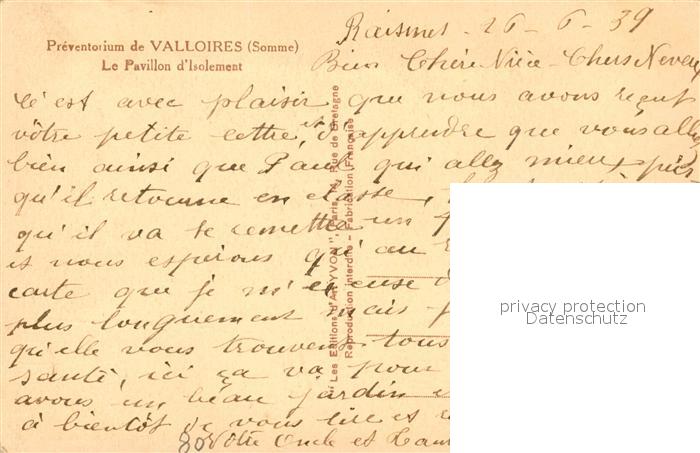 Préventorium de VALLOIRES (Somme)
Le Pavillon d'Isolement
Raismes - 26 - 6 - 39
Bien Chère Nièce - Chers Neveu
C'est avec plaisir que nous avons reçut
vôtre petite lettre, d'apprendre que vous allez
bien ainsi que Paul qui allez mieux puis
qu'il retourne en classe,
qu'il va se remettre un
et nous espérons qu'au
carte que je m'excuse d
plus longuement mais
qu'elle vous trouvent tous
santé, ici ça va pour
avons un beau jardin
à bientôt de vous lire et
80 Vôtre Oncle et Tan
"Les Editions d'Art YVON", Paris, 14, Rue de Bretagne
Reproduction interdite - Fabrication Française
privacy protection
Datenschutz